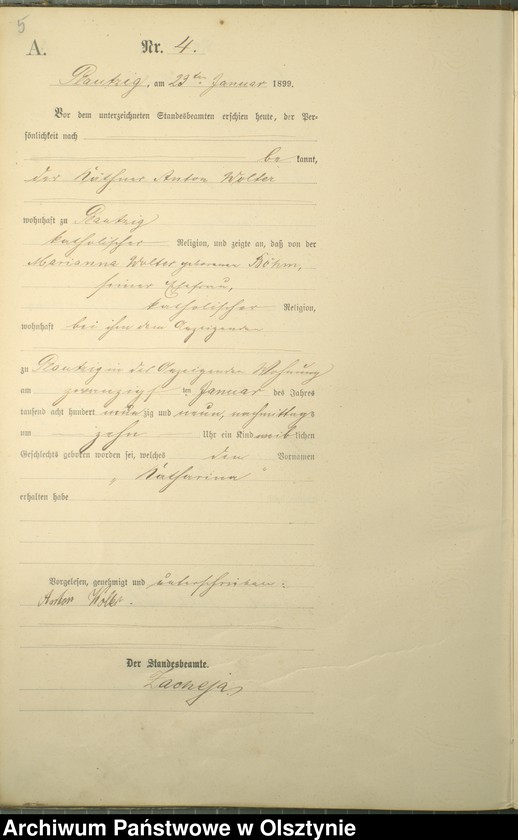 5
A.
Nr. 4.
Plautzig, am 23ten Januar 1899.
Vor dem unterzeichneten Standesbeamten erschien heute, der Per-
sönlichkeit nach
be kannt,
der Käthner Anton Wolter
wohnhaft zu Plautzig
katholischer Religion, und zeigte an, daß von der
Marianna Wolter geborenen Böhm,
seiner Ehefrau,
katholischer Religion,
wohnhaft bei ihm dem Anzeigenden
zu Plautzig in des Anzeigenden Wohnung
am zwanzigsten Januar des Jahres
tausend acht hundert neunzig und neun, nachmittags
um zehn Uhr ein Kind weiblichen
Geschlechts geboren worden sei, welches den Vornamen
„Katharina"
erhalten habe
Vorgelesen, genehmigt und unterschrieben.
Anton Wolter.
Der Standesbeamte.
Zacheja
Archiwum Państwowe w Olsztynie